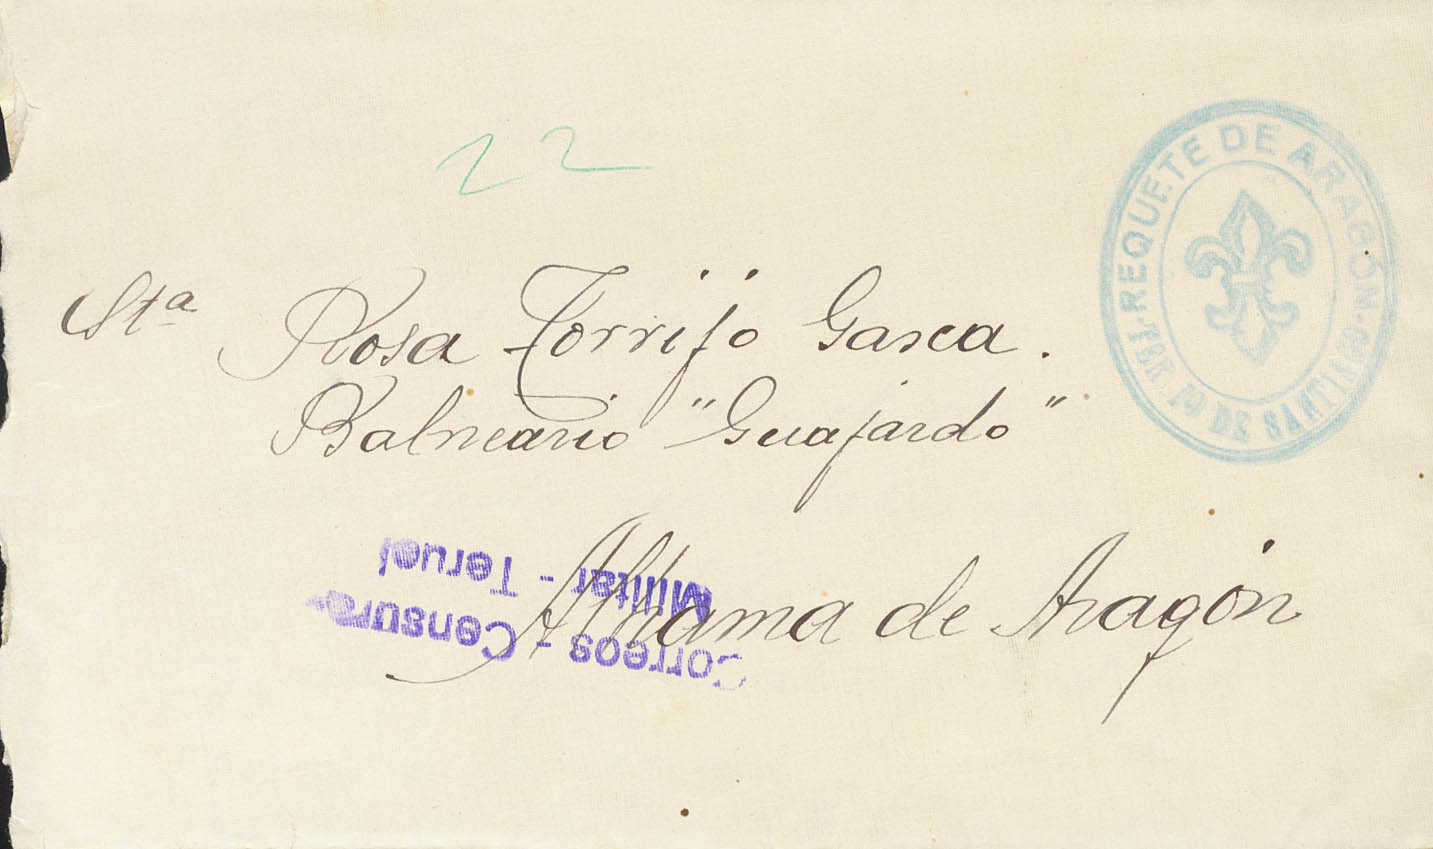 22
REQUETE DE ARAGÓN
TER. DE SANTIAGO
Sta Rosa Torrijo Gasca.
Balneario "Guajardo"
Alhama de Aragón
Correos - Censura
Militar - Teruel